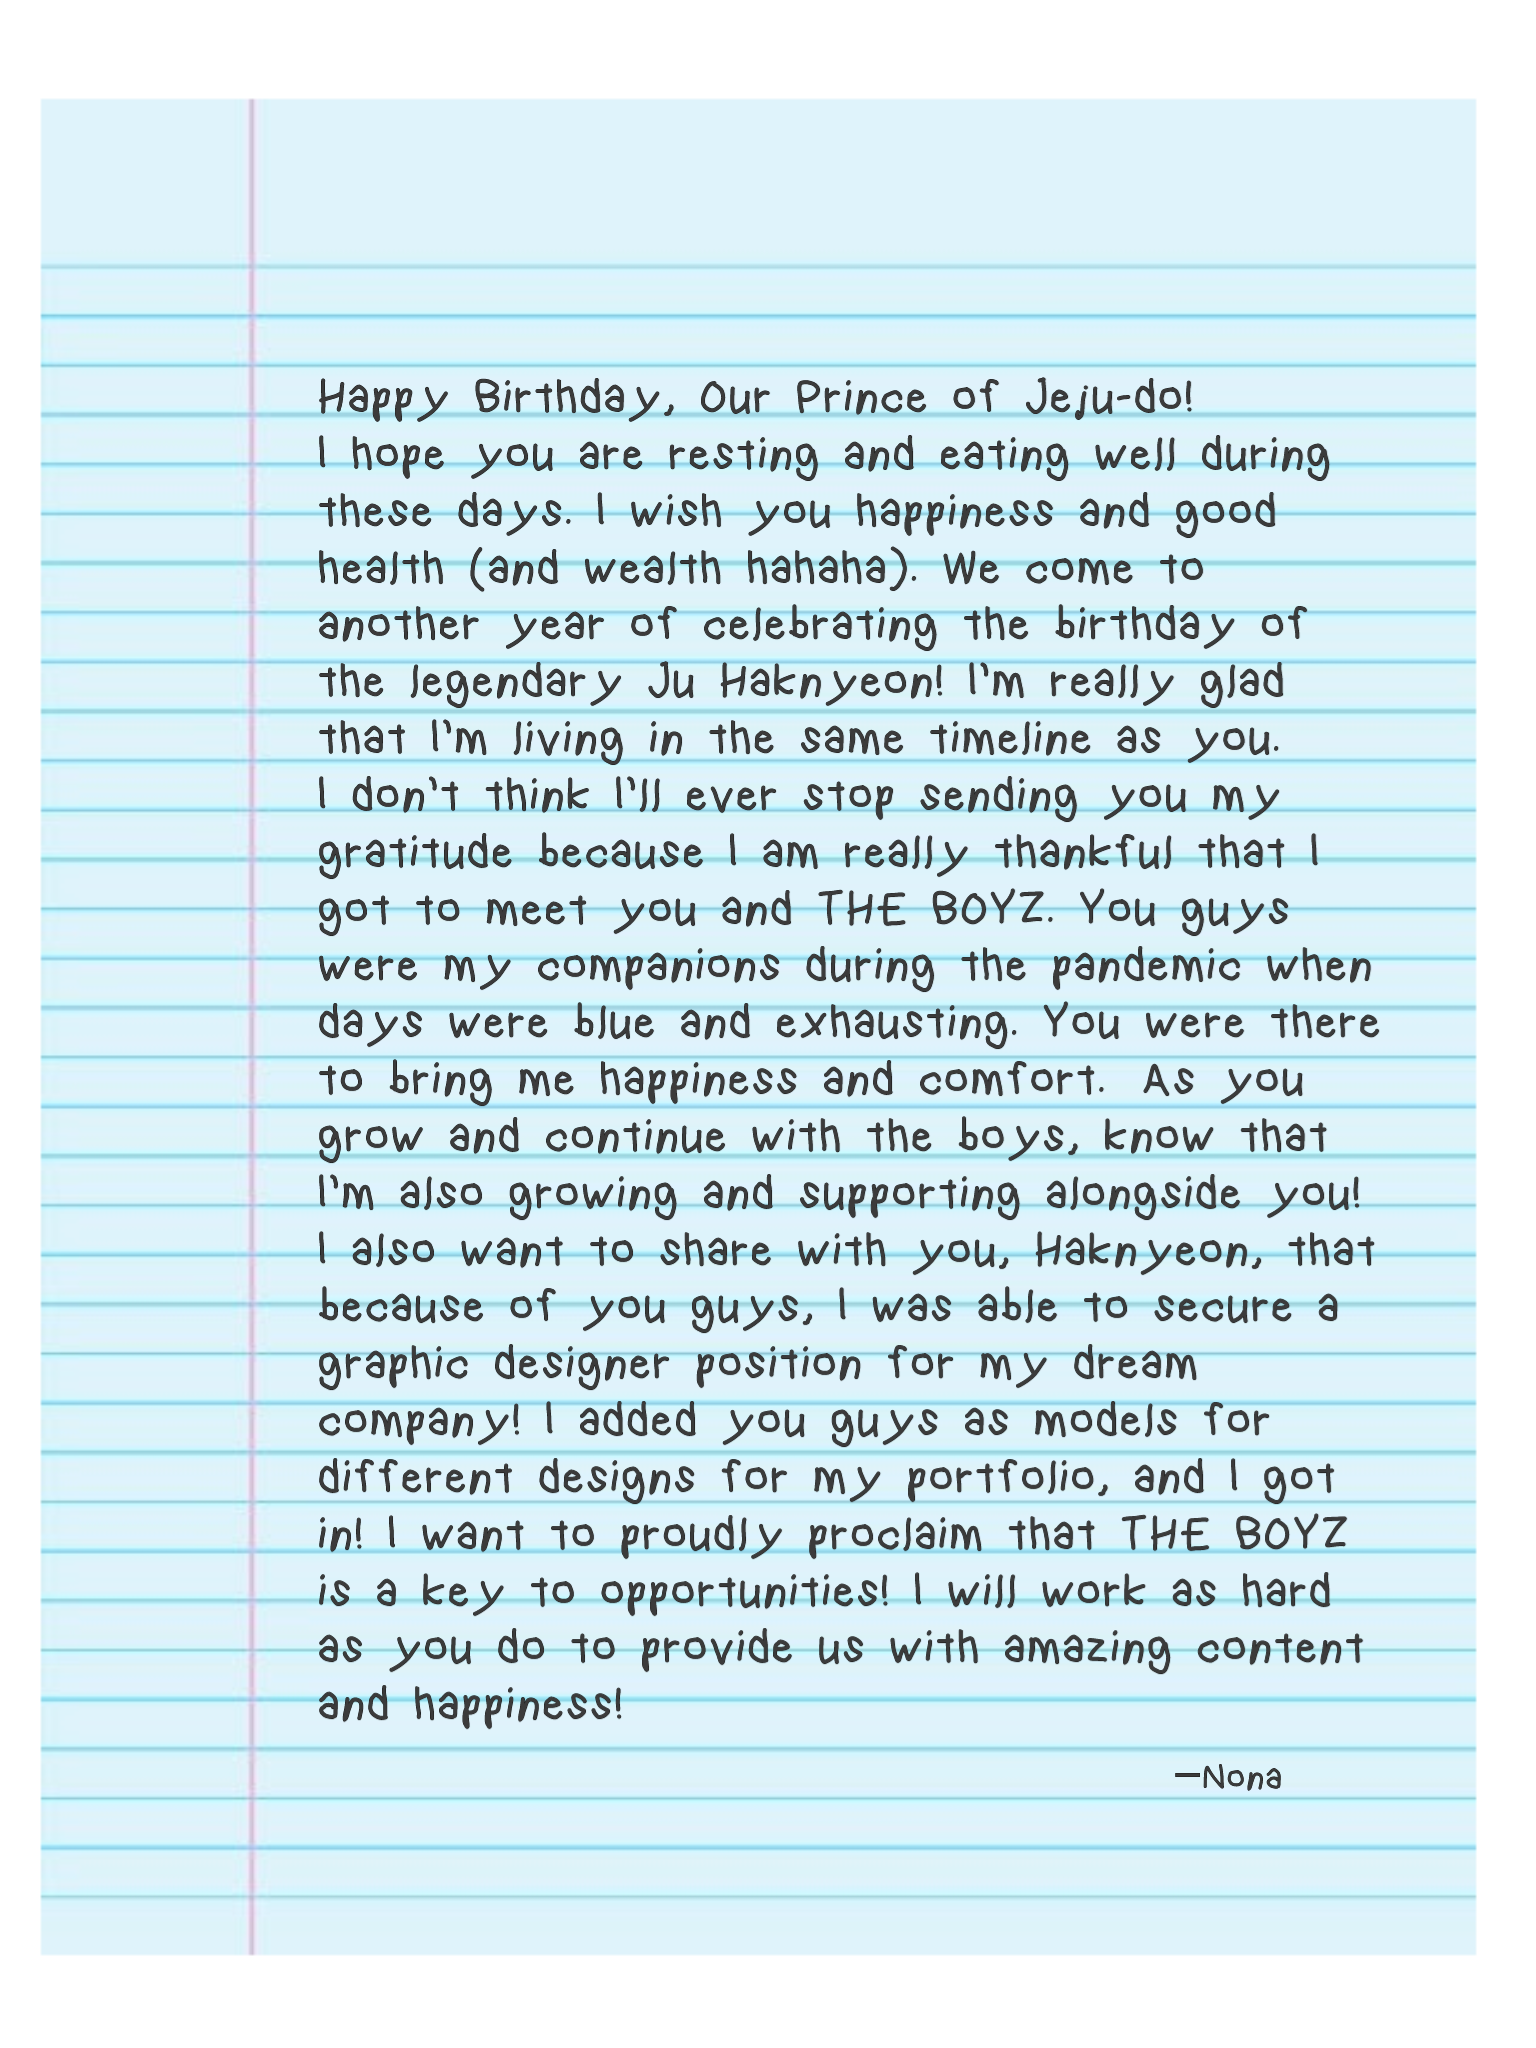 Happy Birthday, Our Prince of Jeju-do!
I hope you are resting and eating well during
these days. I wish you happiness and good
health (and wealth hahaha). We come to
another year of celebrating the birthday of
the legendary Ju Haknyeon! I'm really glad
that I'm living in the same timeline as you.
I don't think I'll ever stop sending you my
gratitude because I am really thankful that I
got to meet you and THE BOYZ. You guys
were my companions during the pandemic when
days were blue and exhausting. You were there
to bring me happiness and comfort. As you
grow and continue with the boys, know that
I'm also growing and supporting alongside you!
I also want to share with you, Haknyeon, that
because of you guys, I was able to secure a
graphic designer position for my dream
company! I added you guys as models for
different designs for my portfolio, and I got
in! I want to proudly proclaim that THE BOYZ
is a key to opportunities! I will work as hard
as you do to provide us with amazing content
and happiness!
—Nona